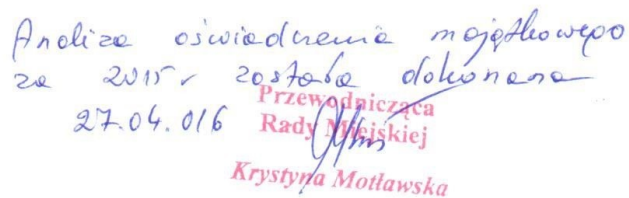 Analiza oświadczenia majątkowego
za 2015 r została dokonana
27.04.016
Przewodnicząca
Rady Miejskiej
Krystyna Motławska